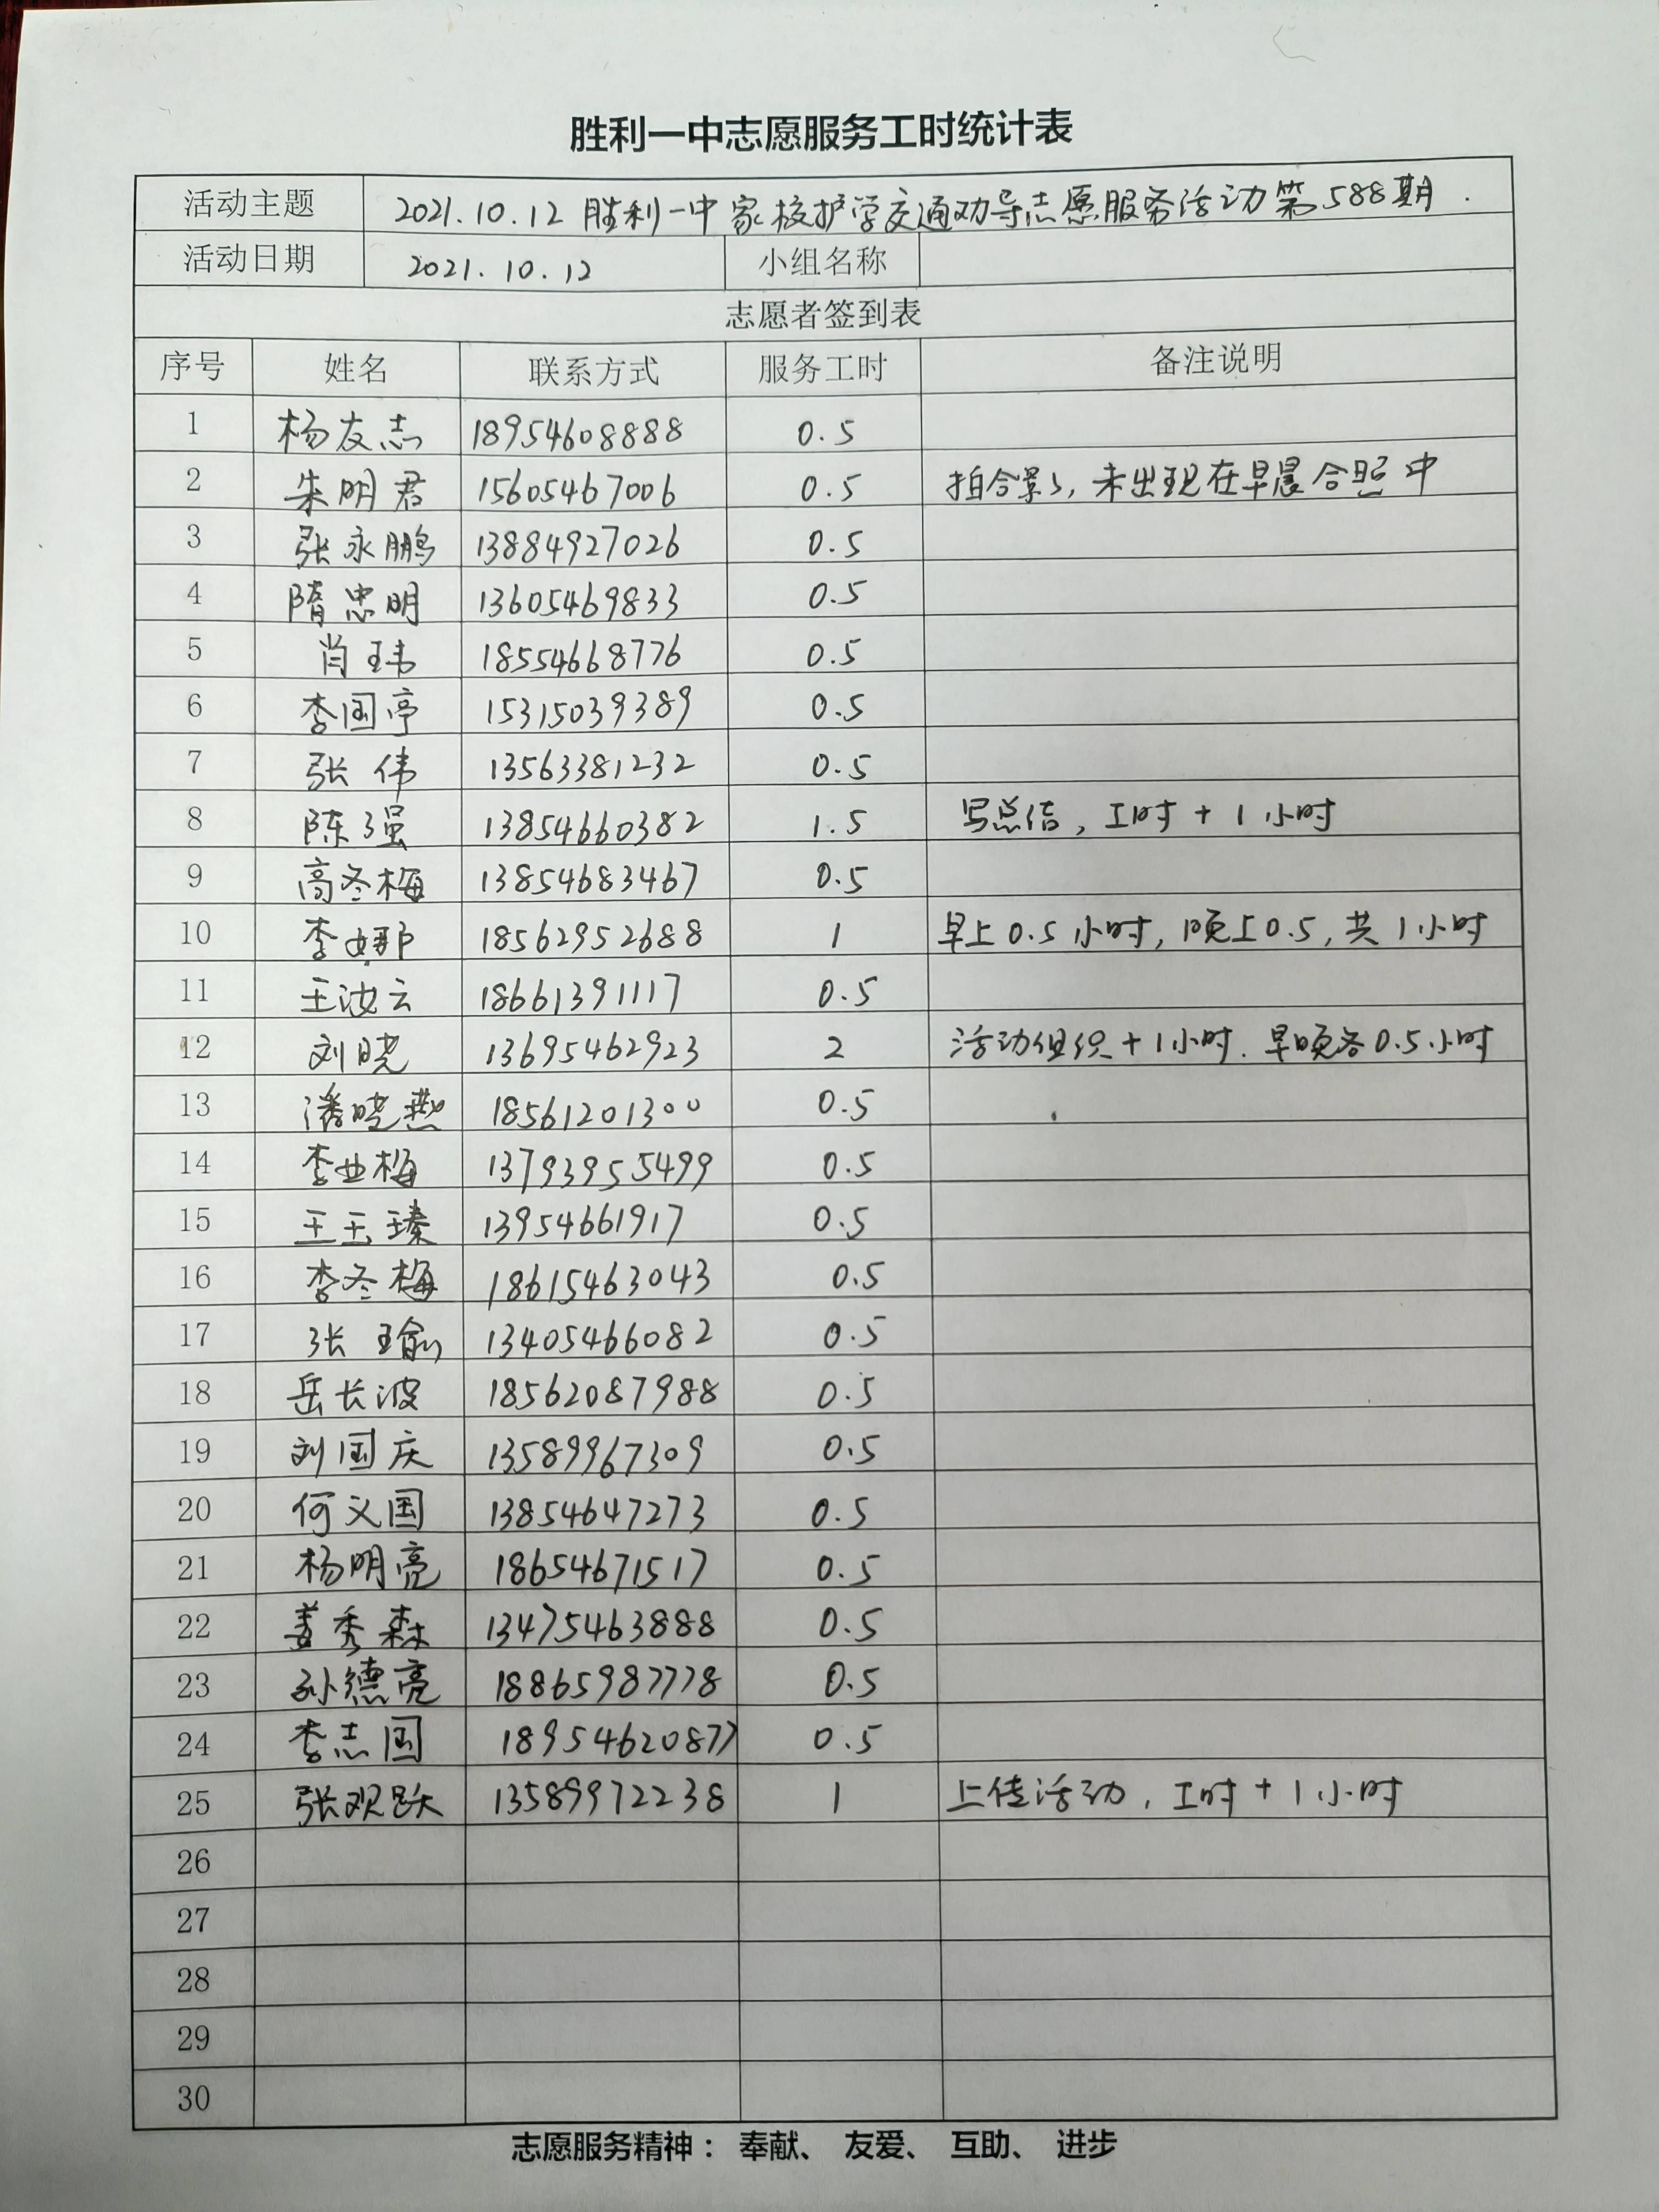 胜利一中志愿服务工时统计表
活动主题 2021.10.12 胜利一中家校护学交通劝导志愿服务活动第588期.
活动日期 2021.10.12 小组名称
志愿者签到表
序号 姓名 联系方式 服务工时 备注说明
1 杨友志 18954608888 0.5
2 朱明君 15605467006 0.5 拍合影,未出现在早晨合照中
3 张永鹏 13884927026 0.5
4 隋忠明 13605469833 0.5
5 肖玮 18554668776 0.5
6 李国亭 15315039389 0.5
7 张伟 13563381232 0.5
8 陈强 13854660382 1.5 写总结,工时+1小时
9 高冬梅 13854683467 0.5
10 李娜 18562952688 1 早上0.5小时,晚上0.5,共1小时
11 王汝云 18661391117 0.5
12 刘晓 13695462923 2 活动组织+1小时.早晚各0.5小时
13 潘晓燕 18561201300 0.5
14 李业梅 13793955499 0.5
15 王玉瑧 13954661917 0.5
16 李冬梅 18615463043 0.5
17 张瑜 13405466082 0.5
18 岳长波 18562087988 0.5
19 刘国庆 13589967309 0.5
20 何义国 13854647273 0.5
21 杨明亮 18654671517 0.5
22 姜秀森 13475463888 0.5
23 孙德亮 18865987778 0.5
24 李志国 18954620877 0.5
25 张观跃 13589972238 1 上传活动,工时+1小时
26
27
28
29
30
志愿服务精神： 奉献、 友爱、 互助、 进步